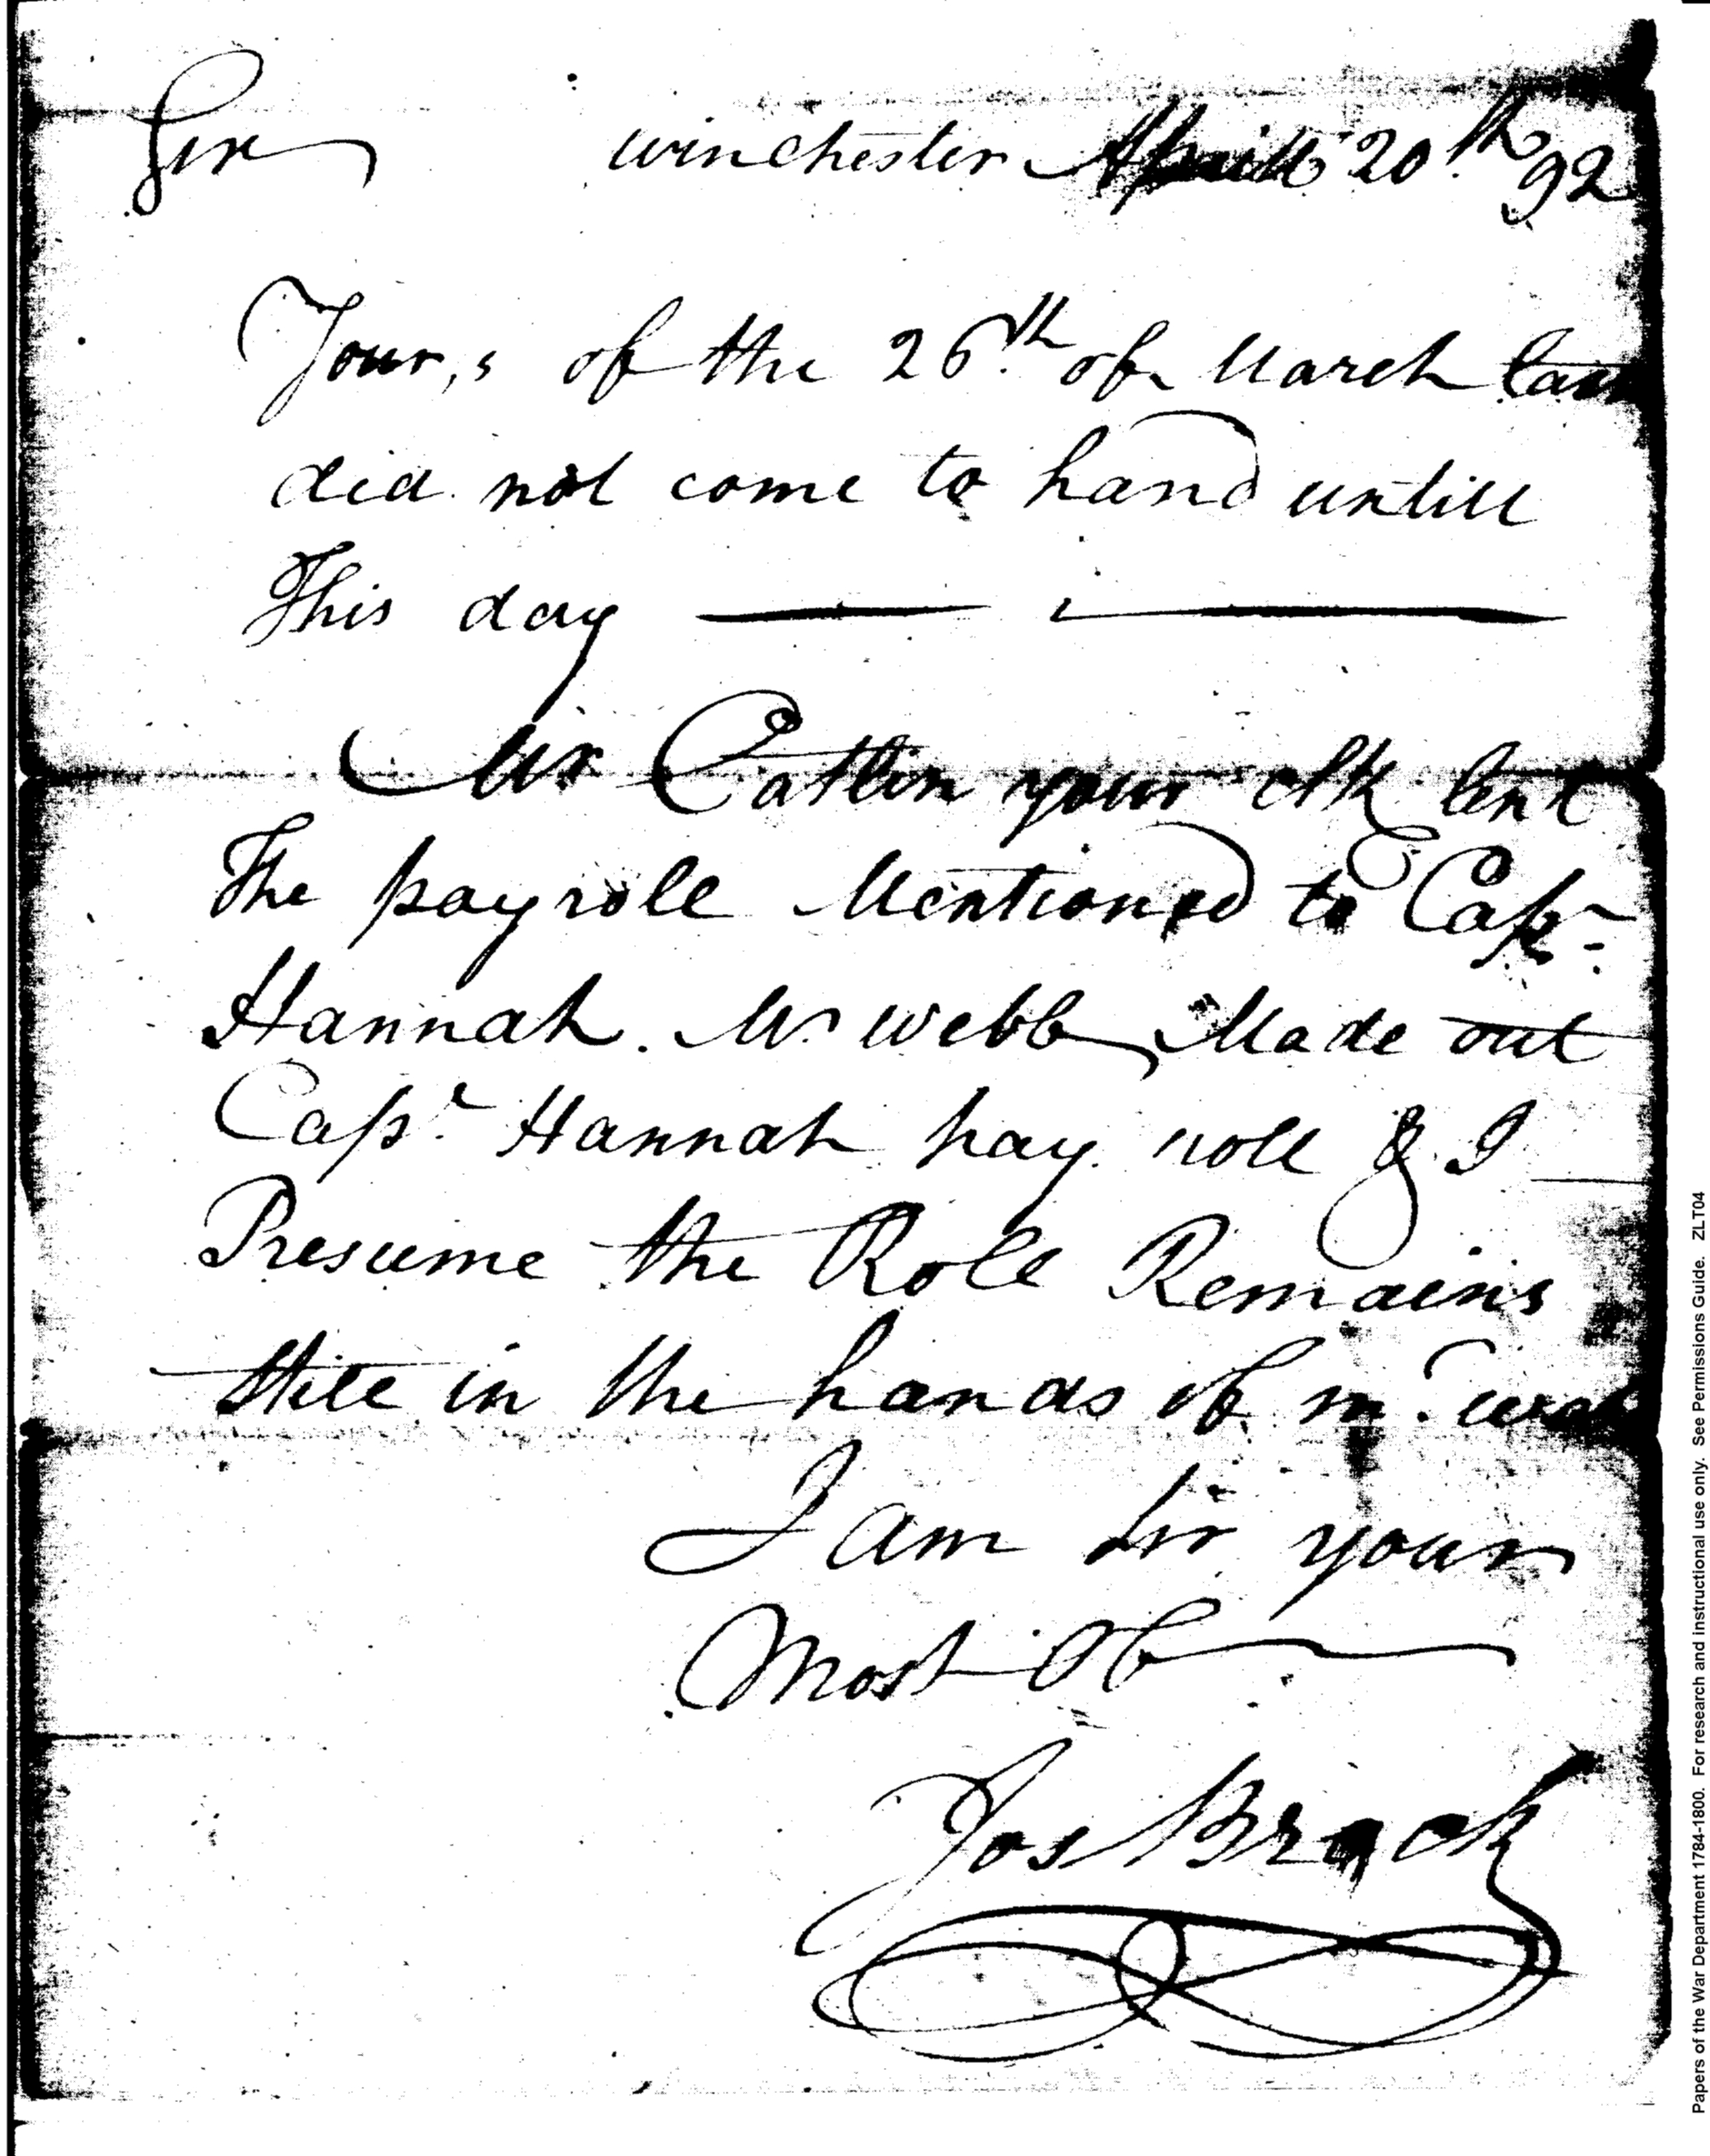 Sir winchester Aprill 20th 92
Your,s of the 26th of March
did not come to hand untill
This day
Mr Catlin your clk lent
The payrole Mentioned to Capt
Hannah. Mr webb, Made out
Capt. Hannah pay roll & I
Presume the Role Remains
still in the hands of mr.
I am Sir your
Most Ob
Jos Brock
Papers of the War Department 1784-1800. For research and instructional use only. See Permissions Guide. ZLT04